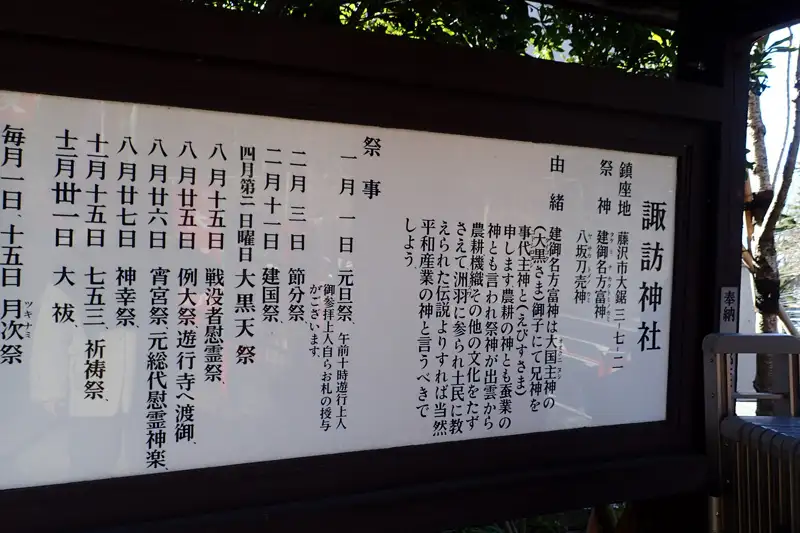 諏訪神社
鎮座地 藤沢市大鋸三-七-二
祭神 建御名方富神
八坂刀売神
由緒 建御名方富神は大国主神の
(大黒さま)御子にて兄神を
事代主神と(えびすさま)
申します農耕の神とも蚕業の
神とも言われ祭神が出雲から
農耕機織その他の文化をたず
さえて洲羽に参られ土民に教
えられた伝説よりすれば当然
平和産業の神と言うべきで
しよう。
祭事
一月一日 元旦祭、午前十時遊行上人
御参拝上人自らお札の授与
がございます。
二月三日 節分祭、
二月十一日 建国祭、
四月第二日曜日 大黒天祭
八月十五日 戦没者慰霊祭、
八月廿五日 例大祭遊行寺へ渡御、
八月廿六日 宵宮祭、元総代慰霊神楽、
八月廿七日 神幸祭、
十一月十五日 七五三、祈祷祭、
十二月卅一日 大祓、
毎月一日、十五日 月次祭
ツキナミ
奉納